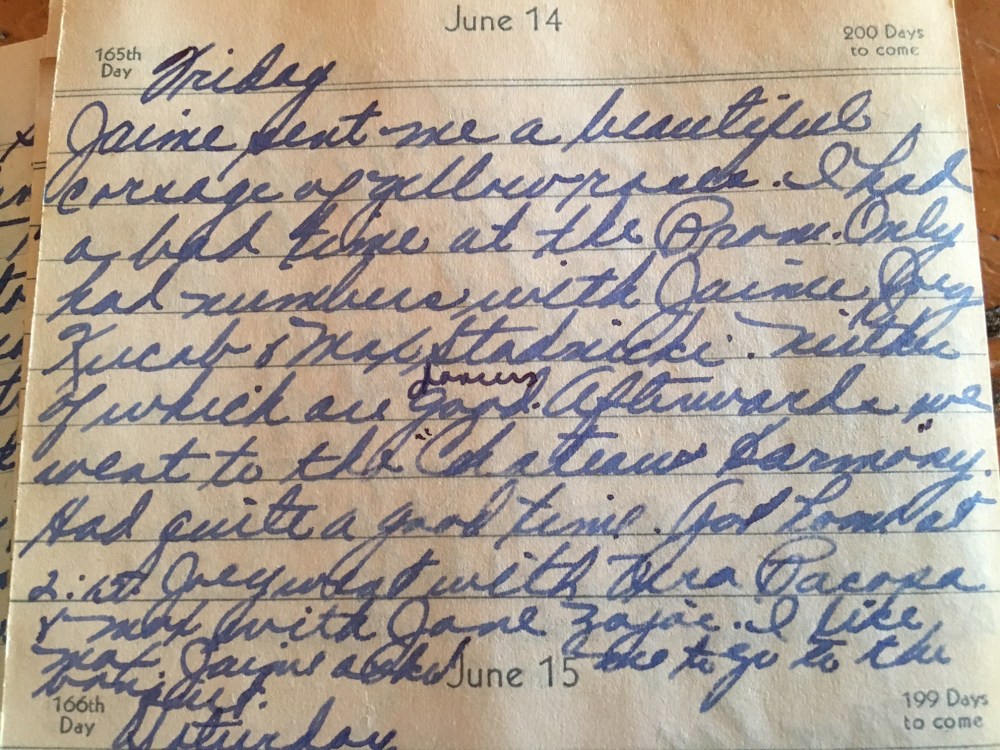 June 14
165th
Day
200 Days
to come
Friday
Jaime sent me a beautiful
corsage of yellow roses. I had
a bad time at the Prom. Only
had numbers with Jaime, Joey
Kucab & Max Stadnicki. Neither
dancers
of which are good. Afterwards we
went to the "Chateau Harmony."
Had quite a good time. Got home at
2:15. Joey went with Vera Pacopa
& Max with Jane Zajac. I like
Max. Jaime asked me to go to the
banquet.
June 15
166th
Day
199 Days
to come
Saturday